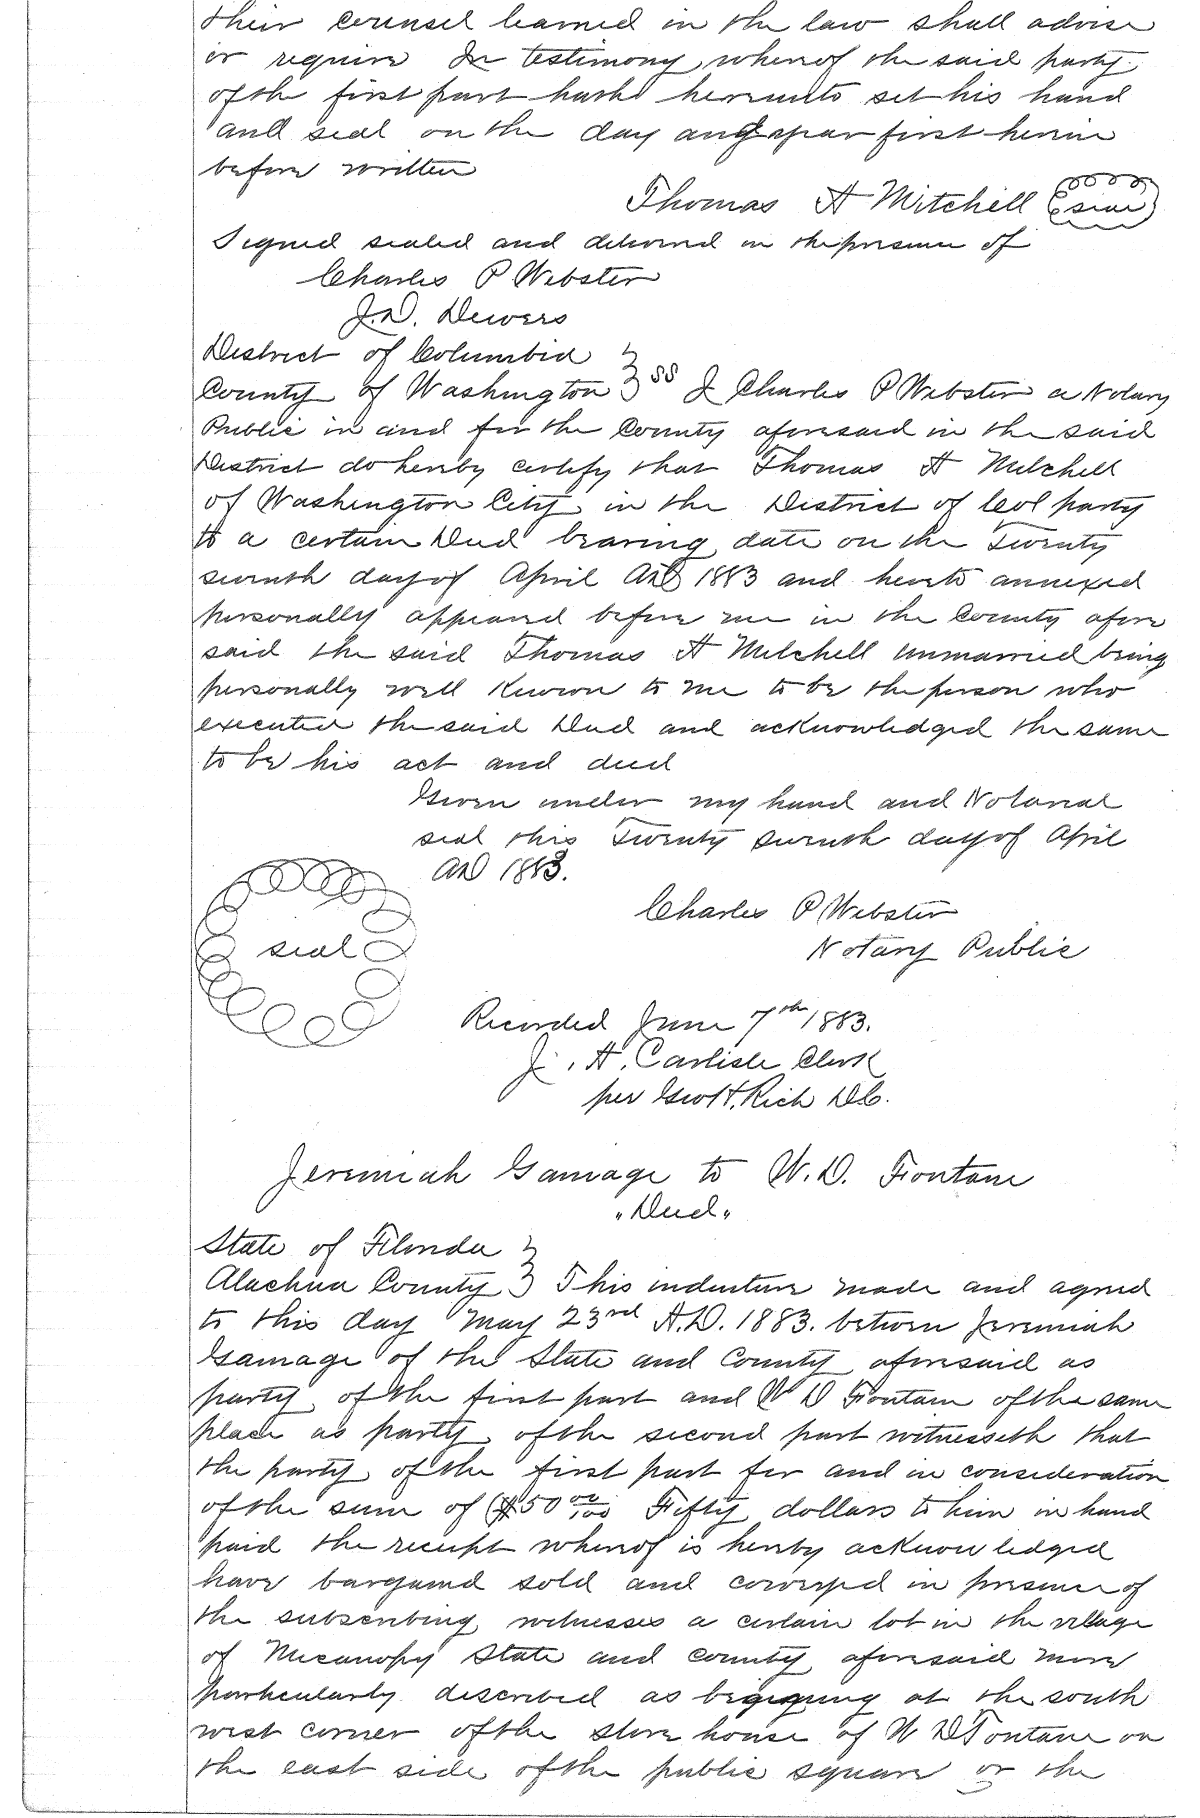 their counsel learned in the law shall advise
or require In testimony whereof the said party
of the first part hath hereunto set his hand
and seal on the day and year first herein
before written
Thomas H Mitchell seal
Signed sealed and delivered in the presence of
Charles P Webster
J.D.
District of Columbia
County of Washington ss I Charles P Webster a Notary
Public in and for the County aforesaid in the said
District do hereby certify that Thomas H Mitchell
of Washington City in the District of Col party
to a certain Deed bearing date on the Twenty
seventh day of April AD 1883 and hereto annexed
personally appeared before me in the County afore
said the said Thomas H Mitchell unmarried being
personally well known to me to be the person who
executed the said Deed and acknowledged the same
to be his act and deed
Given under my hand and Notarial
seal this Twenty seventh day of April
AD 1883.
Charles P Webster
seal
Notary Public
Recorded June 7th 1883.
J. H. Carlisle Clerk
per Geo H. Rich D.C.
Jeremiah Gamage to W. D. Fontane
"Deed"
State of Florida
Alachua County This indenture made and agreed
to this day May 23rd A.D. 1883. between Jeremiah
Gamage of the State and County aforesaid as
party of the first part and W D Fontane of the same
place as party of the second part witnesseth that
the party of the first part for and in consideration
of the sum of ($50 00/100 Fifty dollars to him in hand
paid the receipt whereof is hereby acknowledged
have bargained sold and conveyed in presence of
the subscribing witnesses a certain lot in the village
of Micanopy State and County aforesaid more
particularly described as beginning at the south
west corner of the store house of W D Fontane on
the east side of the public square or the